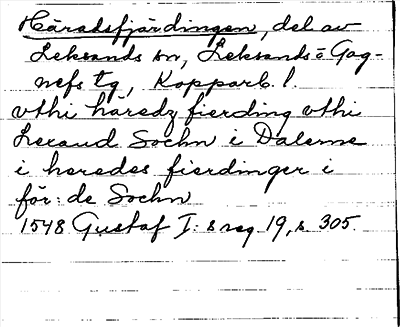 Häradsfjärdingen, del av
Leksands sn, Leksands o Gag-
nefs tg, Kopparb. l.
vthi häredz fierding vthi
Lexand Sochn i Dalerne
i heredes fierdinger i
för: de Sochn
1548 Gustaf I: s reg 19, s. 305.